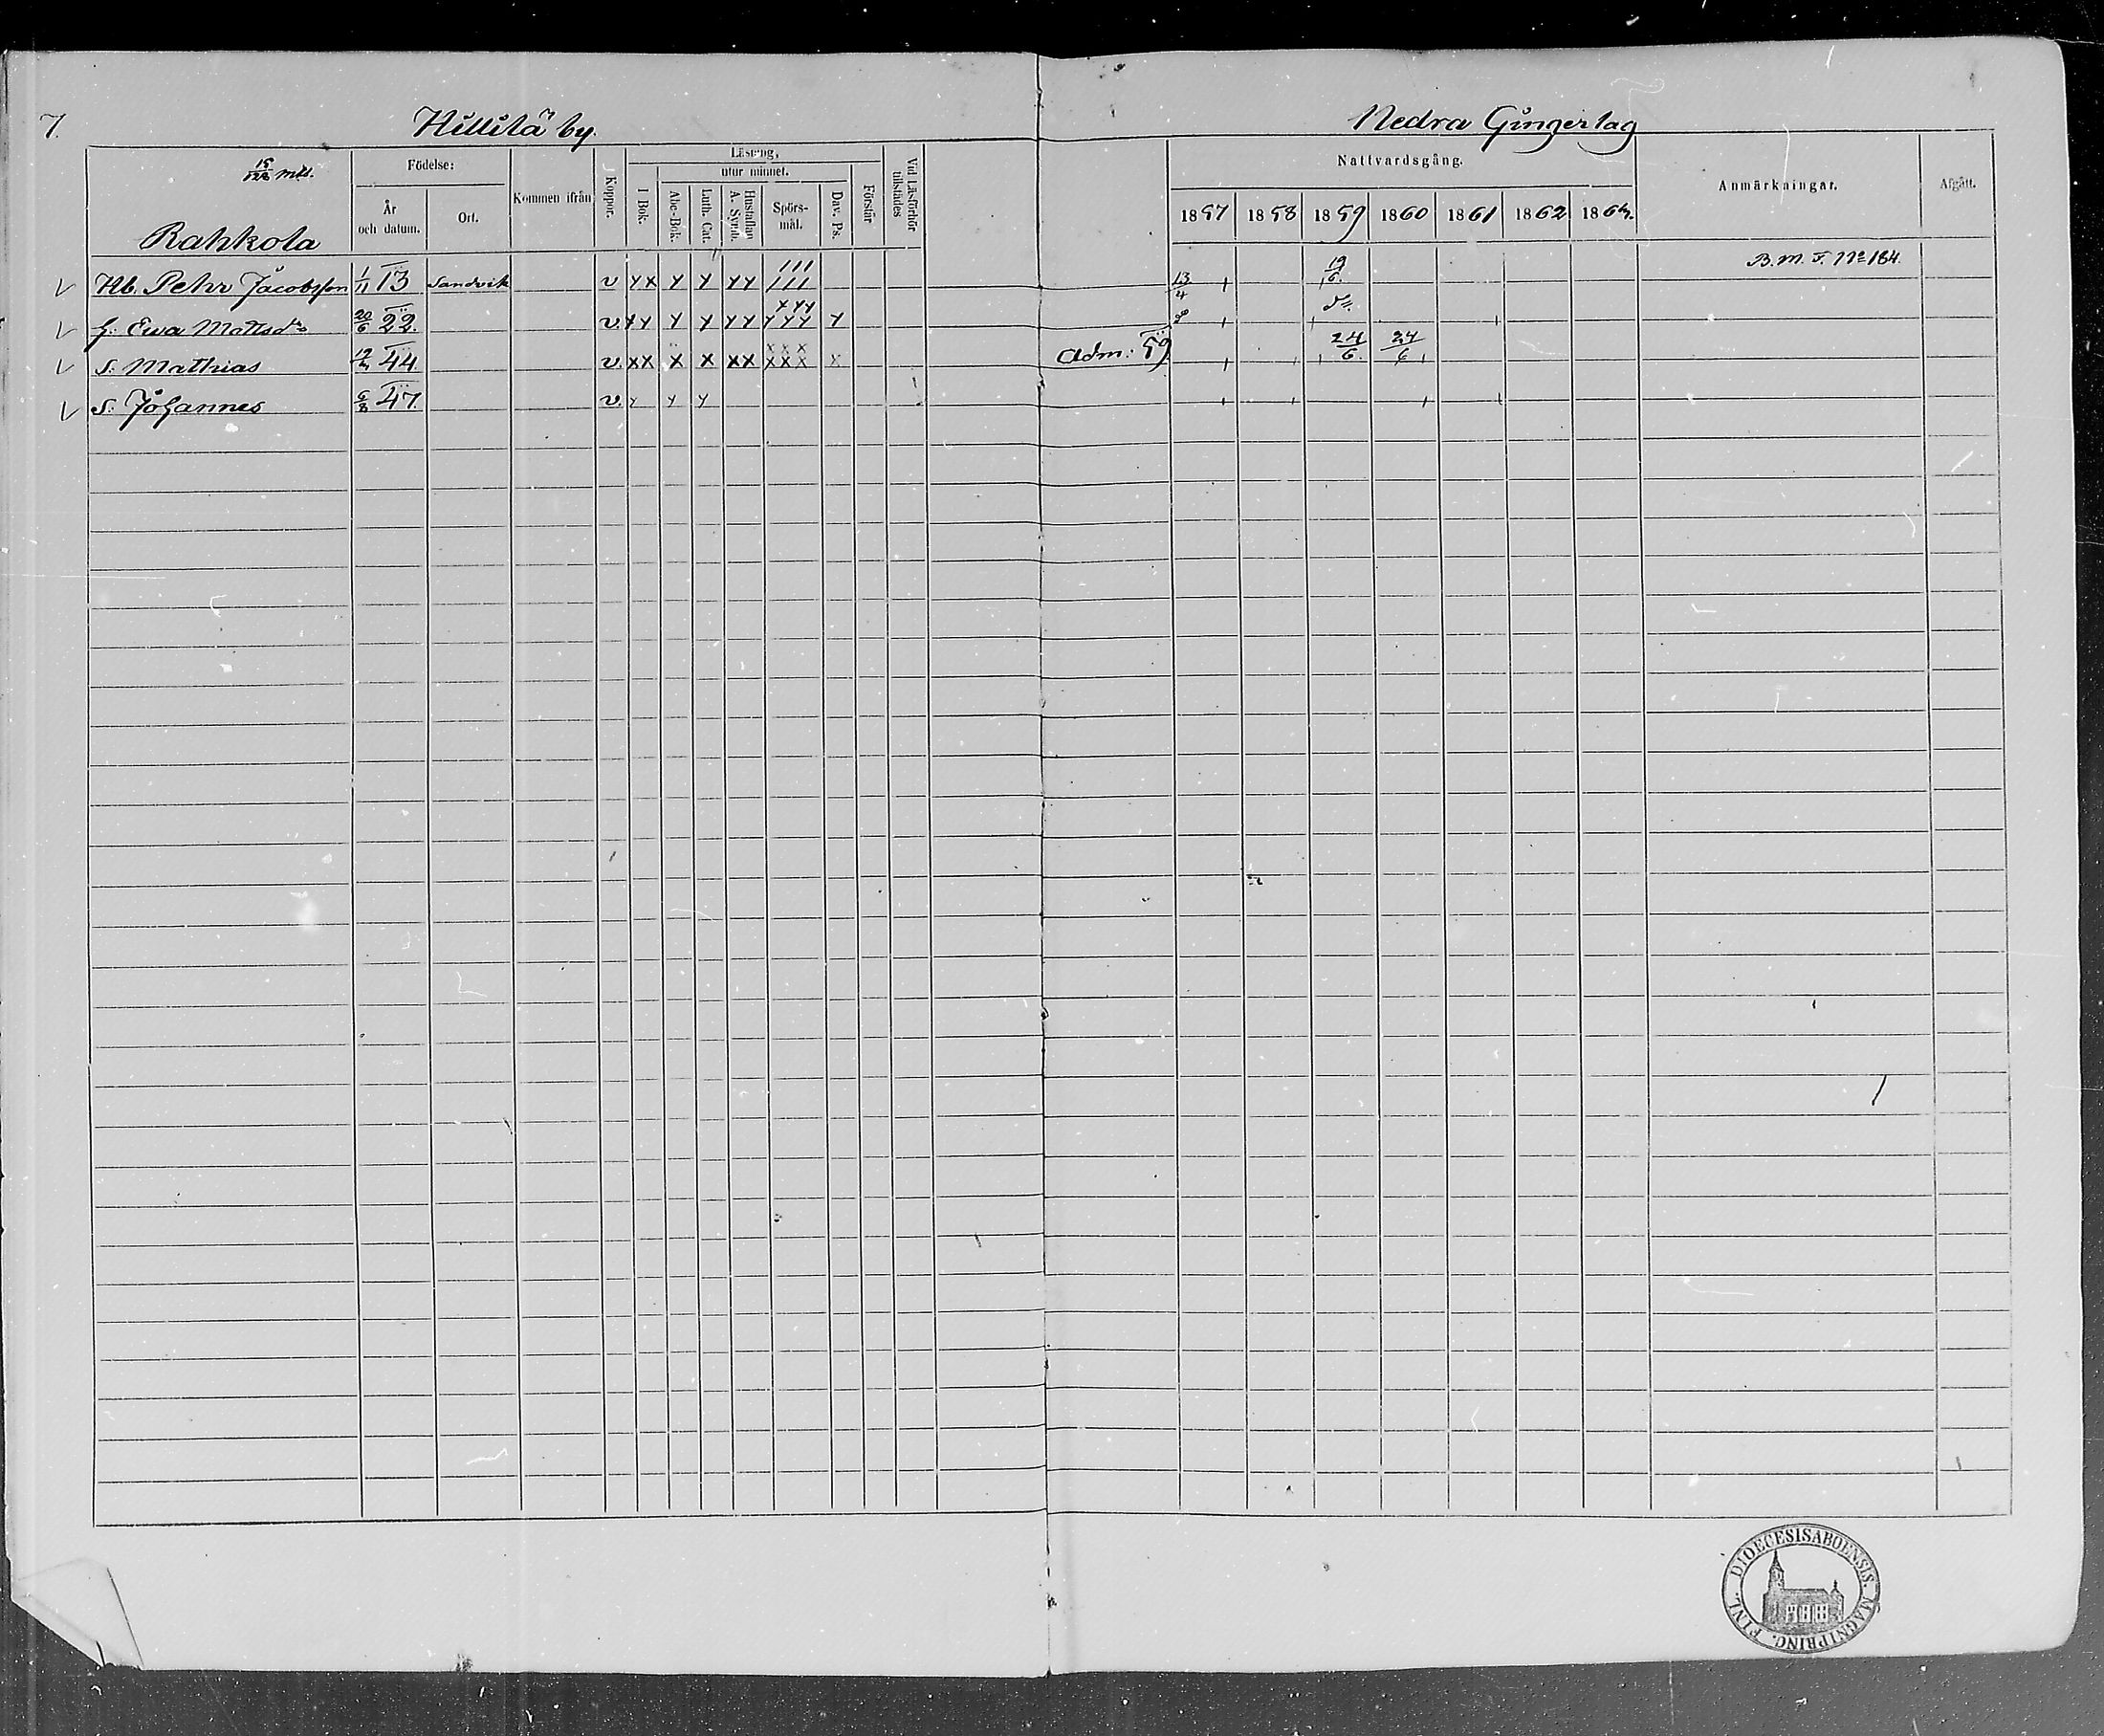 7.
Hillilä by.
Nedra Gingerlag
15/128 mtl.
Rahkola
Födelse:
År och datum.
Ort.
Kommen ifrån
Koppor.
Läsning,
utur minnet.
I Bok.
Abc-Bok.
Luth. Cat.
Hustaflan A. Symb.
Spörs-mål.
Dav. Ps.
Förstår
Vid Läsförhör tillstädes
Nattvardsgång.
1857 1858 1859 1860 1861 1862
Anmärkningar.
Afgått.
Hb. Pehr Jacobsson 1/11 13 Sandvik v xx x x xx 13/4 19/6. B.M.F. No 184.
h: Ewa Mattsdr 20/6 22. v. xx x x xx xxx x do
s: Mathias 44. v. xx x x xx xxx x Adm: 59 24/6. 24/6
s. Johannes 6/8 47. v. x x x
DIOECESIS ABOENSIS. MAGNI PRINC. FINL.